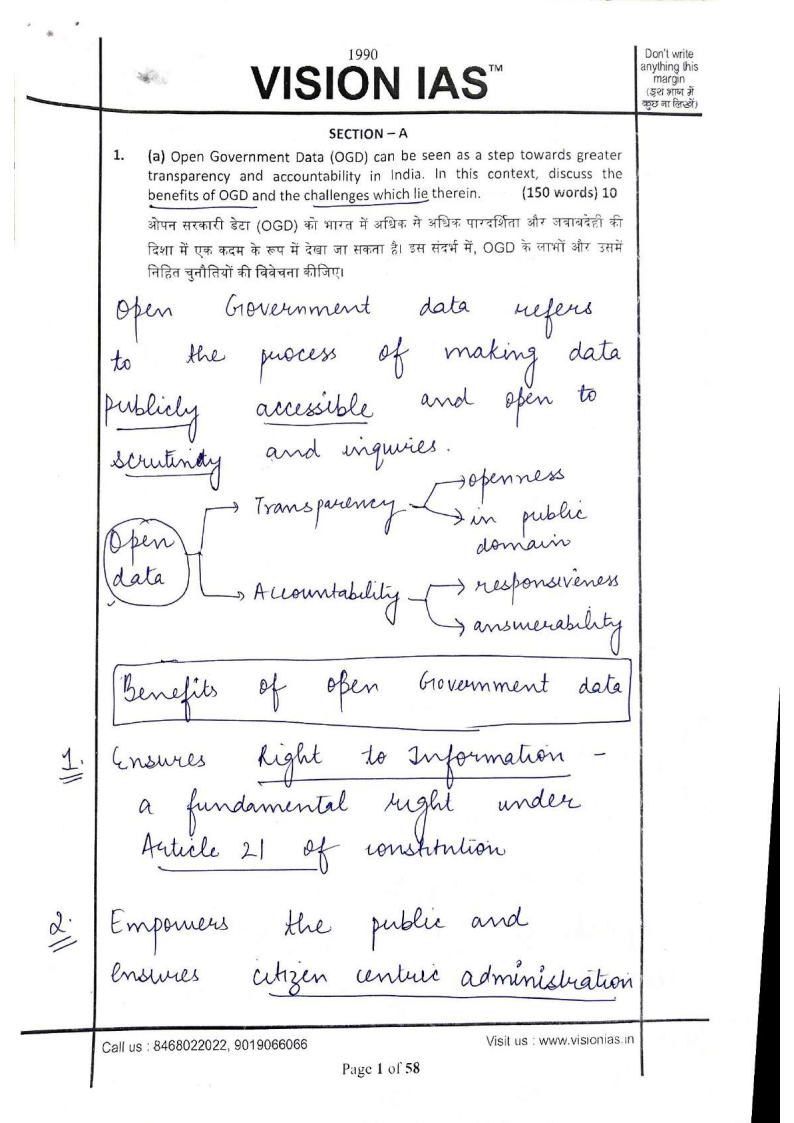 1990
VISION IAS™
Don't write
anything this
margin
(इस भाग में
कुछ ना लिखें)
SECTION – A
1. (a) Open Government Data (OGD) can be seen as a step towards greater
transparency and accountability in India. In this context, discuss the
benefits of OGD and the challenges which lie therein. (150 words) 10
ओपन सरकारी डेटा (OGD) को भारत में अधिक से अधिक पारदर्शिता और जवाबदेही की
दिशा में एक कदम के रूप में देखा जा सकता है। इस संदर्भ में, OGD के लाभों और उसमें
निहित चुनौतियों की विवेचना कीजिए।
Open Government data refers
to the process of making data
publicly accessible and open to
scrutinity and inquiries.
Open
data
Transparency
openness
in public
domain
Accountability
responsiveness
answerability
Benefits of open Government data
1. Ensures Right to Information -
a fundamental right under
Article 21 of constitution
2. Empowers the public and
ensures citizen centric administration
Call us : 8468022022, 9019066066
Visit us : www.visionias.in
Page 1 of 58